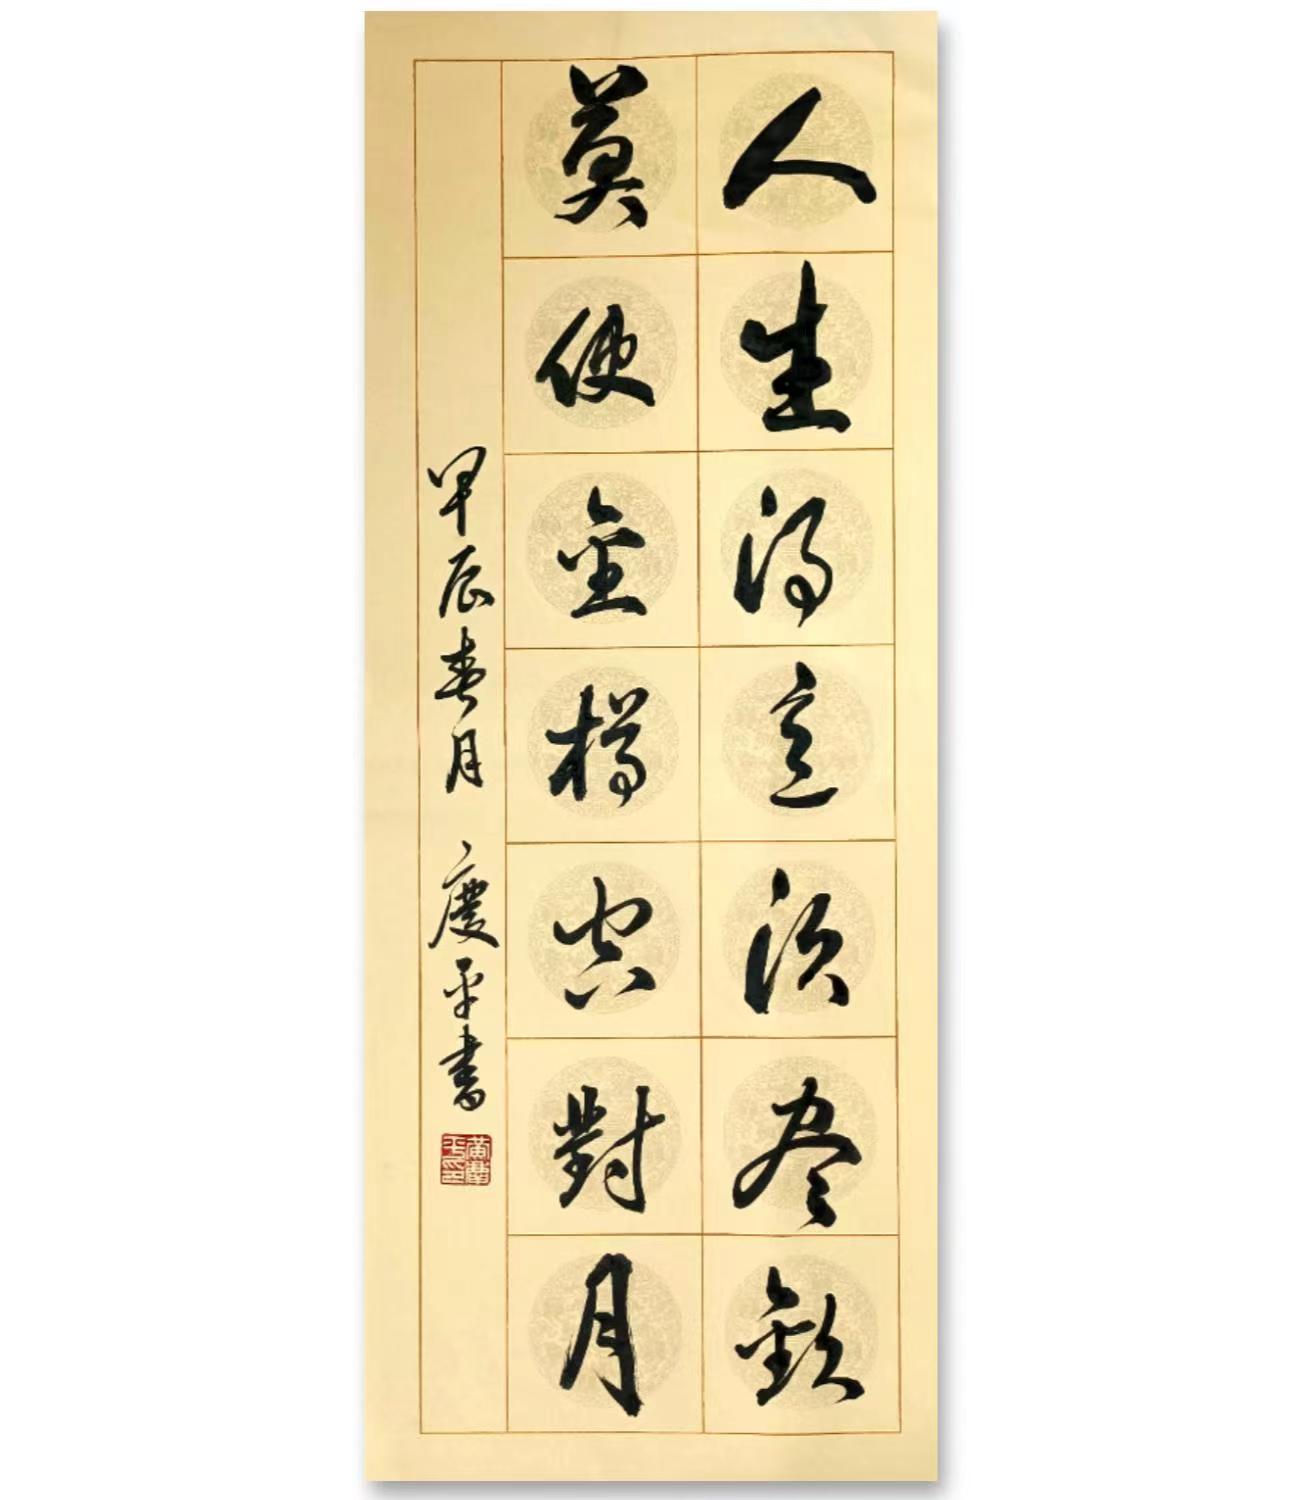 人生得意須尽歡
莫使金樽空對月
甲辰春月 慶平書
黃慶平印